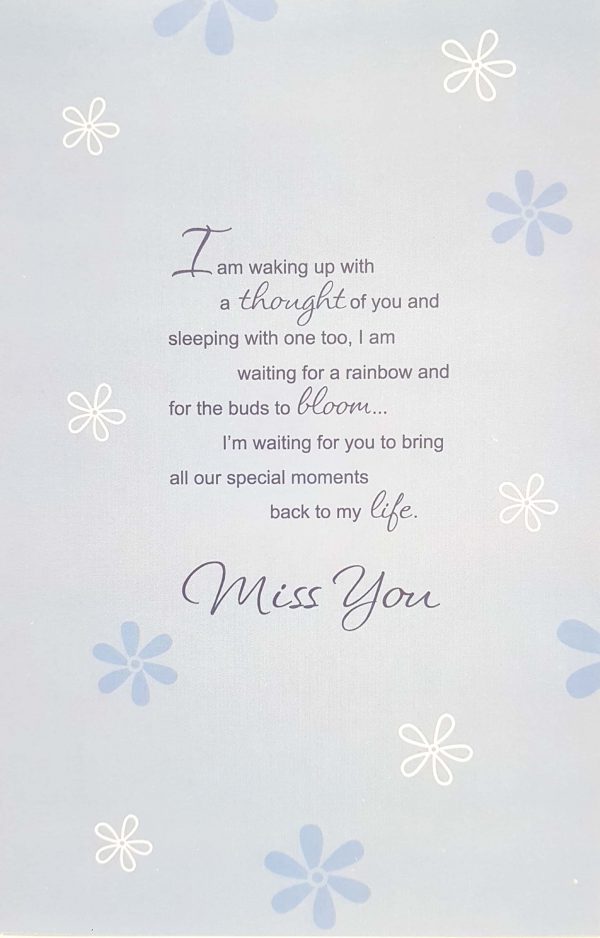 I am waking up with
a thought of you and
sleeping with one too, I am
waiting for a rainbow and
for the buds to bloom...
I'm waiting for you to bring
all our special moments
back to my life.
Miss You